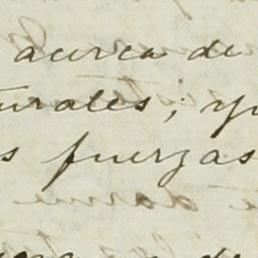 acerca de
urales; y
s fuerzas
de